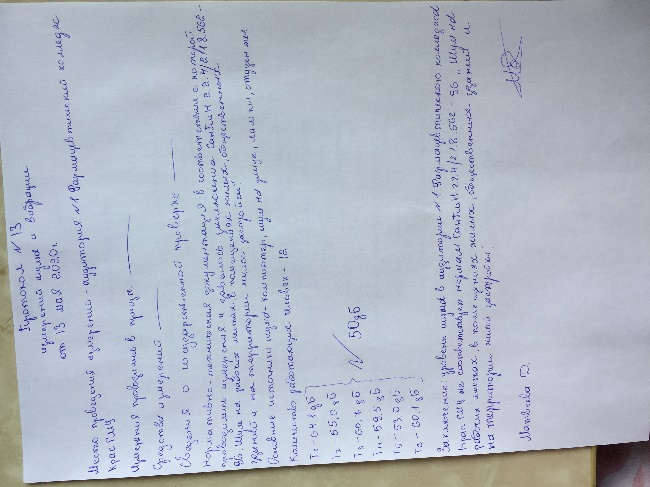 Протокол №13
измерения шума и вибрации
от 13 мая 2020г.
Место проведения измерения - аудитория №1 Фармацевтический колледж
КрасГМУ
Измерения проводились в присут.
Средства измерений
Сведения о государственной проверке
Нормативно-техническая документация в соответствии с которой
проводились измерения и давалось заключение СанПиН 2.2.4/2.1.8.562-
96. Шум на рабочих местах в помещениях жилых, общественных
зданий и на территории жилой застройки
Основные источники шума - компьютер, шум на улице, лампы,
Количество работающих человек - 12
I1 - 64.1 дб
I2 - 55.0 дб
I3 - 60.7 дб
I4 - 59.5 дб
I5 - 57.0 дб
I6 - 60.1 дб
N 50дб
Заключение: уровень шума в аудитории №1 Фармацевтического колледжа
КрасГМУ не соответствует нормам СанПиН 2.2.4/2.1.8.562-96 „Шум на
рабочих местах, в помещениях жилых, общественных зданий и
на территории жилой застройки."